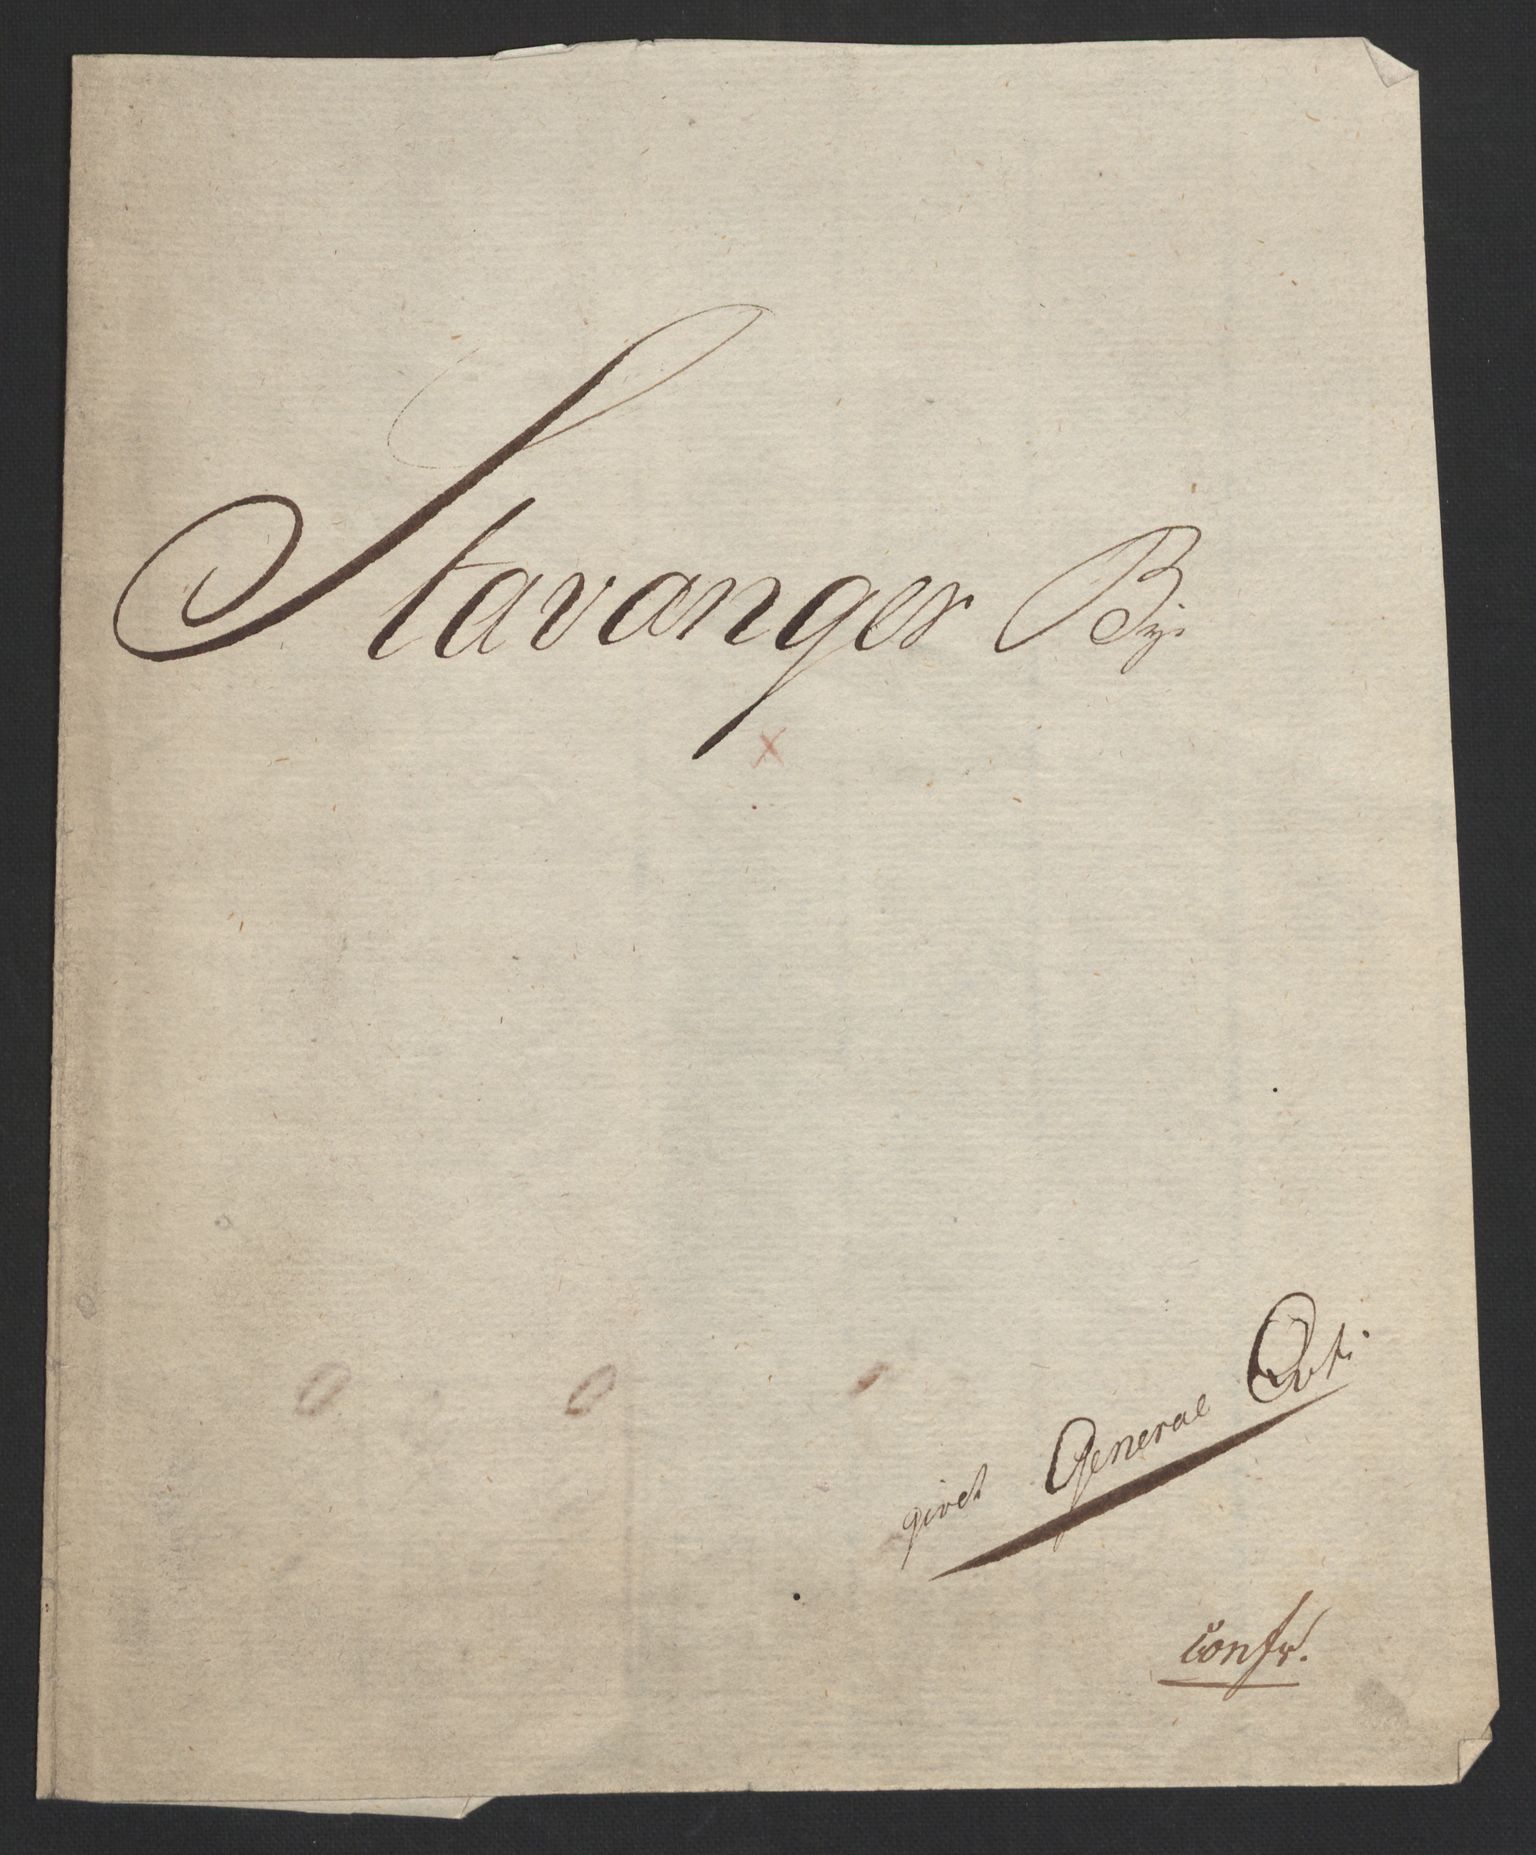 Stavanger By.
x
givet General Qvti
confr.